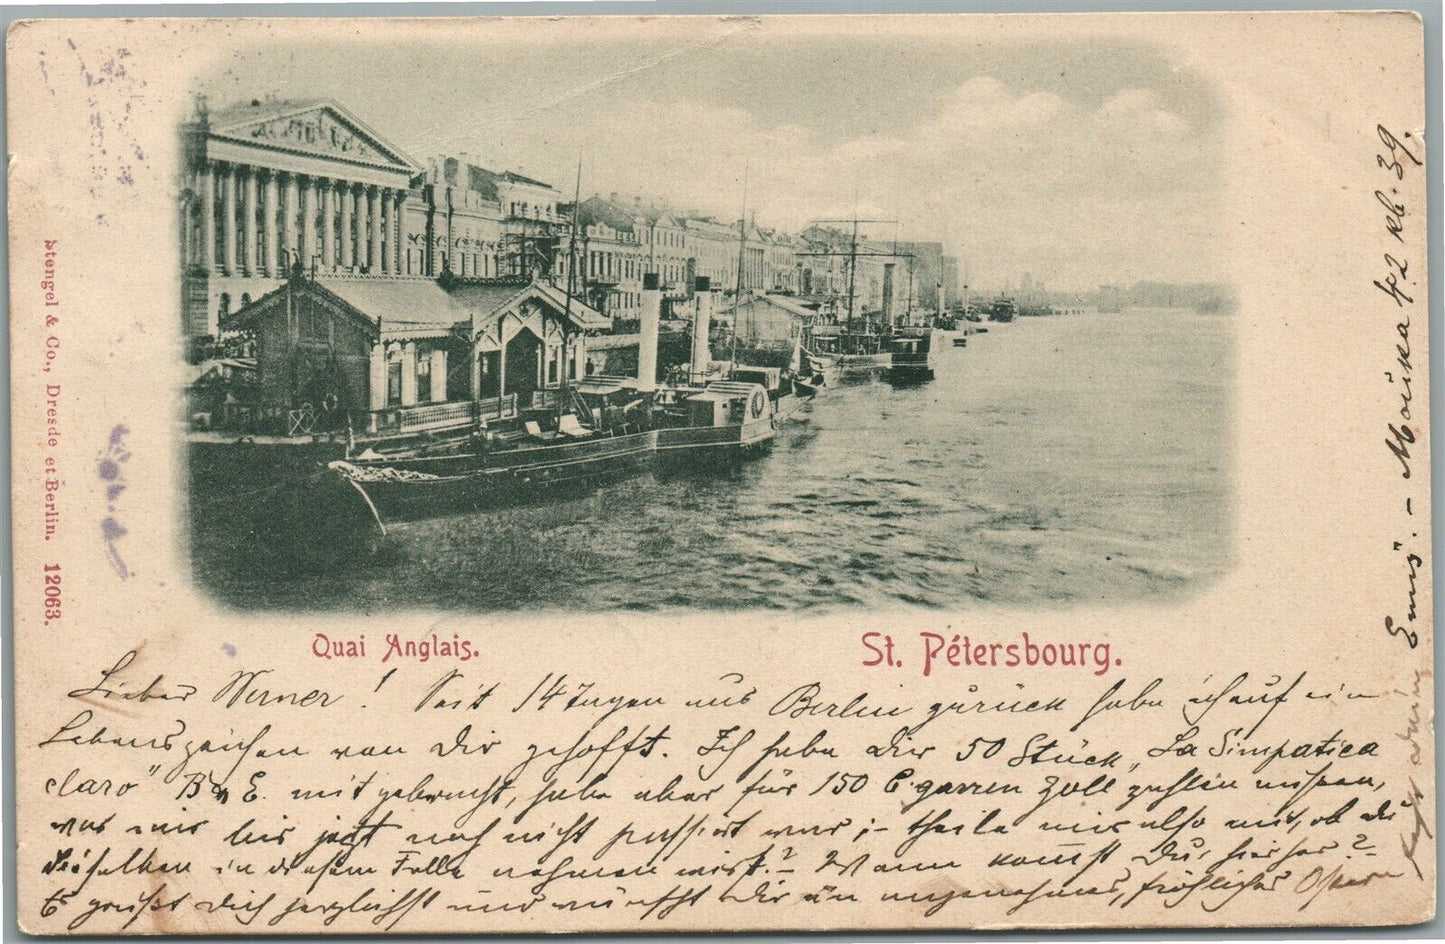 Stengel & Co., Dresde et Berlin. 12063.
Quai Anglais.
St. Pétersbourg.
Lieber Werner! Seit 14 Tagen aus Berlin zurück habe ich auf ein
Lebenszeichen von Dir gehofft. Ich habe dir 50 Stück „La Simpatica
claro" B & E. mitgebracht, habe aber für 150 Cigarren Zoll zahlen müssen,
was mir bis jetzt noch nicht passiert war; – theile mir also mit, ob du
dieselben in diesem Falle nehmen wirst? – Wann kommst Du hierher? –
Es grüßt Dich herzlichst und wünscht Dir ein angenehmes, fröhliches Osterfest
dein Emis". – Мойка 42 кв. 39.